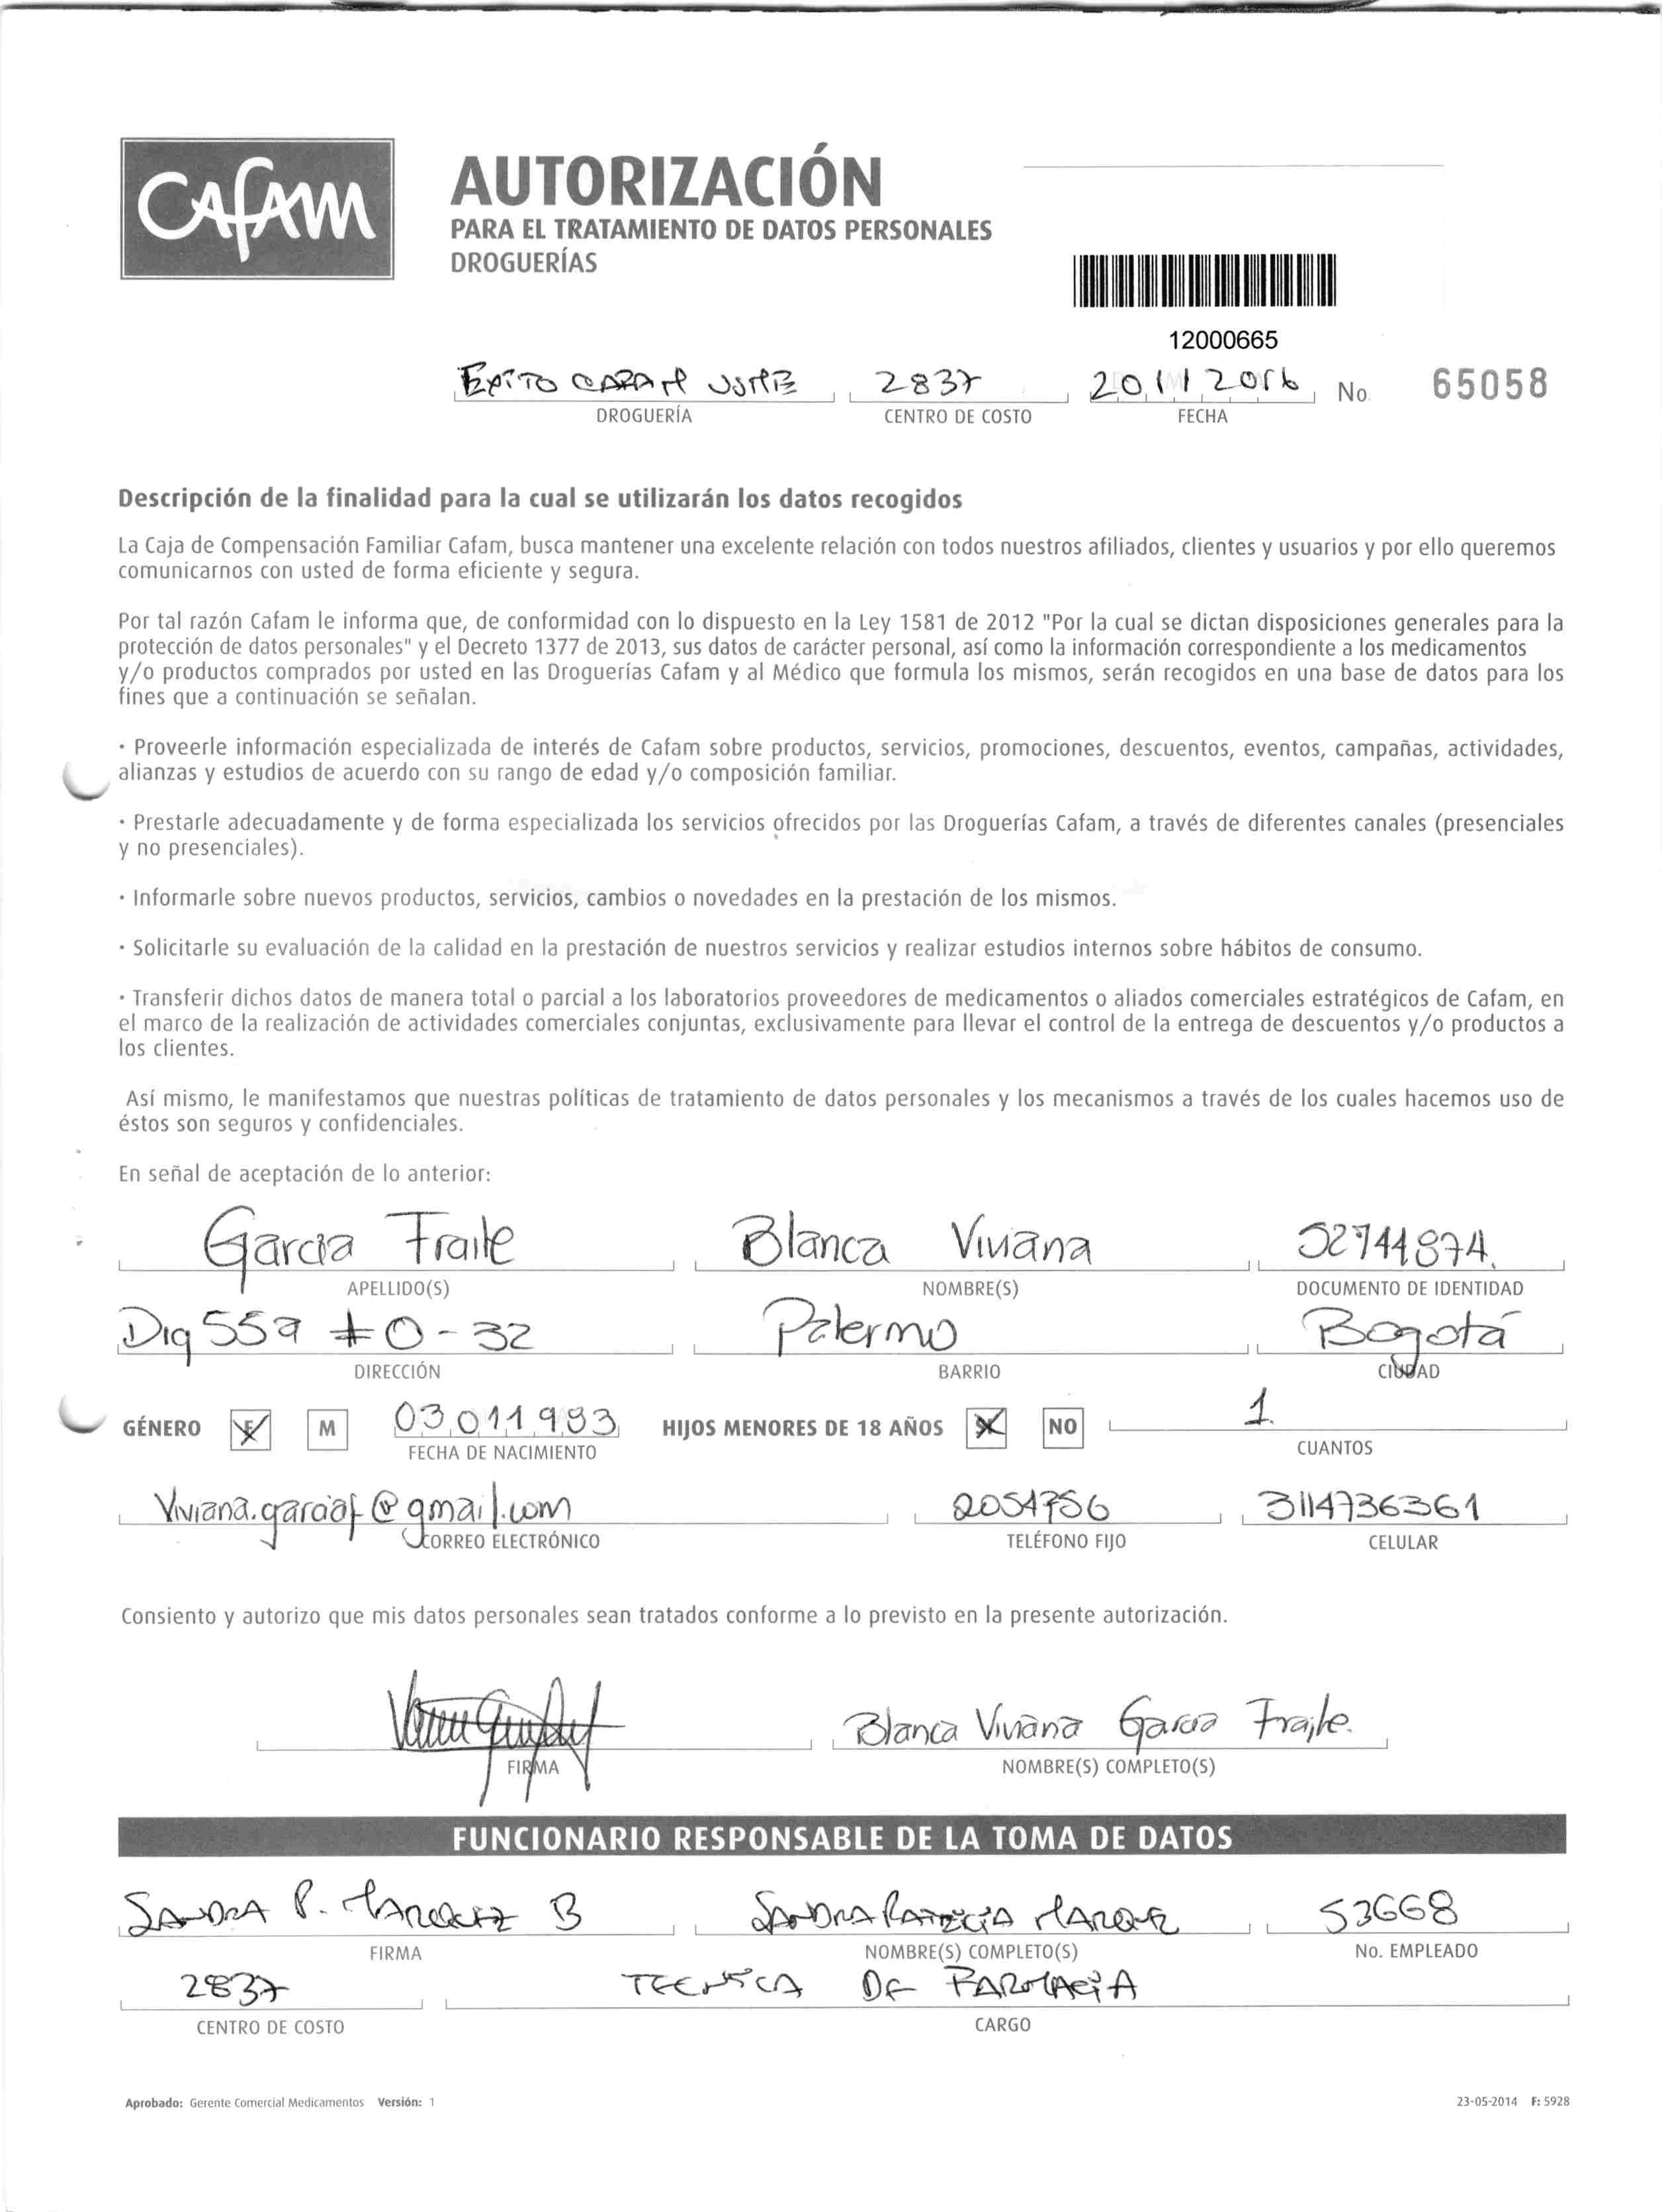 CAFAM
AUTORIZACIÓN
PARA EL TRATAMIENTO DE DATOS PERSONALES
DROGUERÍAS
12000665
EXITO 2837 20 11 2016 No. 65058
DROGUERÍA CENTRO DE COSTO FECHA
Descripción de la finalidad para la cual se utilizarán los datos recogidos
La Caja de Compensación Familiar Cafam, busca mantener una excelente relación con todos nuestros afiliados, clientes y usuarios y por ello queremos
comunicarnos con usted de forma eficiente y segura.
Por tal razón Cafam le informa que, de conformidad con lo dispuesto en la Ley 1581 de 2012 "Por la cual se dictan disposiciones generales para la
protección de datos personales" y el Decreto 1377 de 2013, sus datos de carácter personal, así como la información correspondiente a los medicamentos
y/o productos comprados por usted en las Droguerías Cafam y al Médico que formula los mismos, serán recogidos en una base de datos para los
fines que a continuación se señalan.
· Proveerle información especializada de interés de Cafam sobre productos, servicios, promociones, descuentos, eventos, campañas, actividades,
alianzas y estudios de acuerdo con su rango de edad y/o composición familiar.
· Prestarle adecuadamente y de forma especializada los servicios ofrecidos por las Droguerías Cafam, a través de diferentes canales (presenciales
y no presenciales).
· Informarle sobre nuevos productos, servicios, cambios o novedades en la prestación de los mismos.
· Solicitarle su evaluación de la calidad en la prestación de nuestros servicios y realizar estudios internos sobre hábitos de consumo.
· Transferir dichos datos de manera total o parcial a los laboratorios proveedores de medicamentos o aliados comerciales estratégicos de Cafam, en
el marco de la realización de actividades comerciales conjuntas, exclusivamente para llevar el control de la entrega de descuentos y/o productos a
los clientes.
Así mismo, le manifestamos que nuestras políticas de tratamiento de datos personales y los mecanismos a través de los cuales hacemos uso de
éstos son seguros y confidenciales.
En señal de aceptación de lo anterior:
Garcia Fraile Blanca Viviana 52744874.
APELLIDO(S) NOMBRE(S) DOCUMENTO DE IDENTIDAD
Diq 55a # 0 - 32 Palermo Bogotá
DIRECCIÓN BARRIO CIUDAD
GÉNERO F M 03 01 1983 HIJOS MENORES DE 18 AÑOS NO 1
FECHA DE NACIMIENTO CUANTOS
Viviana.garciaf@gmail.com 2051756 3114736361
CORREO ELECTRÓNICO TELÉFONO FIJO CELULAR
Consiento y autorizo que mis datos personales sean tratados conforme a lo previsto en la presente autorización.
Blanca Viviana Garcia Fraile.
FIRMA NOMBRE(S) COMPLETO(S)
FUNCIONARIO RESPONSABLE DE LA TOMA DE DATOS
SANDRA P. MARQUEZ B SANDRA PATRICIA MARQUEZ 53668
FIRMA NOMBRE(S) COMPLETO(S) No. EMPLEADO
2837 TECNICA DE FARMACIA
CENTRO DE COSTO CARGO
Aprobado: Gerente Comercial Medicamentos Versión: 1 23-05-2014 F: 5928